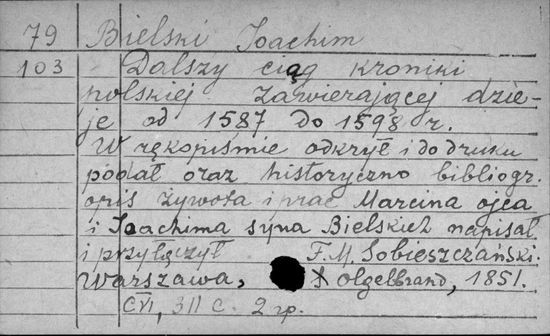 79 Bielski Joachim
103 Dalszy ciąg kroniki
polskiej zawierającej dzie-
je od 1587 do 1598 r.
W rękopiśmie odkrył i do druku
podał oraz historyczno bibliogr.
opis żywota i prac Marcina ojca
i Joachima syna Bielskich napisał
i przyłączył F. M. Sobieszczański.
Warszawa, Olgelbrand, 1851.
311 c. 2 rp.